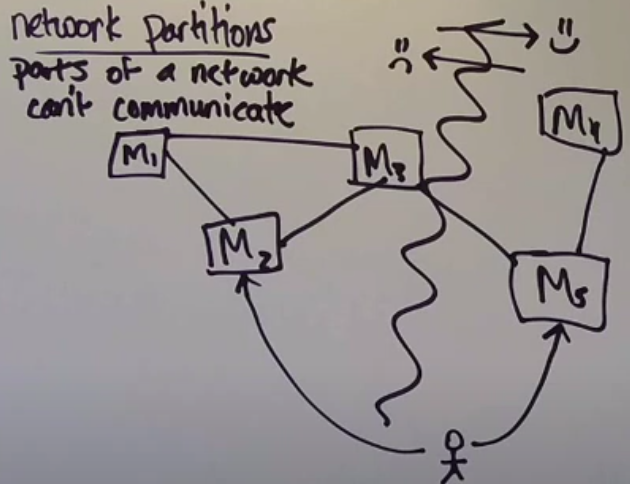 network partitions
parts of a network
can't communicate
M₁
M₃
M₄
M₂
M₅